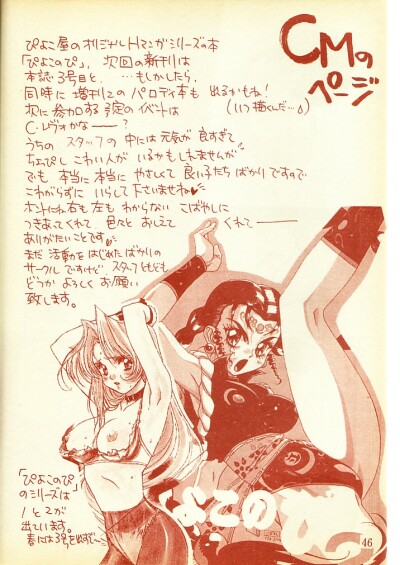 CMの
ページ
ぴよこ屋のオリジナルHマンガシリーズの本
「ぴよこのぴ」、次回の新刊は
本誌3号目と、…もしかしたら、
同時に増刊2のパロディ本も出るかもね!
(いつ描くんだ…)
次に参加する予定のイベントは
C・レヴォかな――?
うちのスタッフの中には元気が良すぎて
ちょぴしこわい人がいるかもしれませんが
でも本当に本当にやさしくて良い子たちばかりですので
こわがらずにいらして下さいませね
ホントにね右も左もわからないこばやしに
つきあってくれて色々とおしえてくれて――
ありがたいことです
まだ活動をはじめたばかりの
サークルですけど、スタッフともども
どうかよろしくお願い
致します。
「ぴよこのぴ」
のシリーズは
1と2が
出ています。
春には3号を出すぞ~
よこの
46